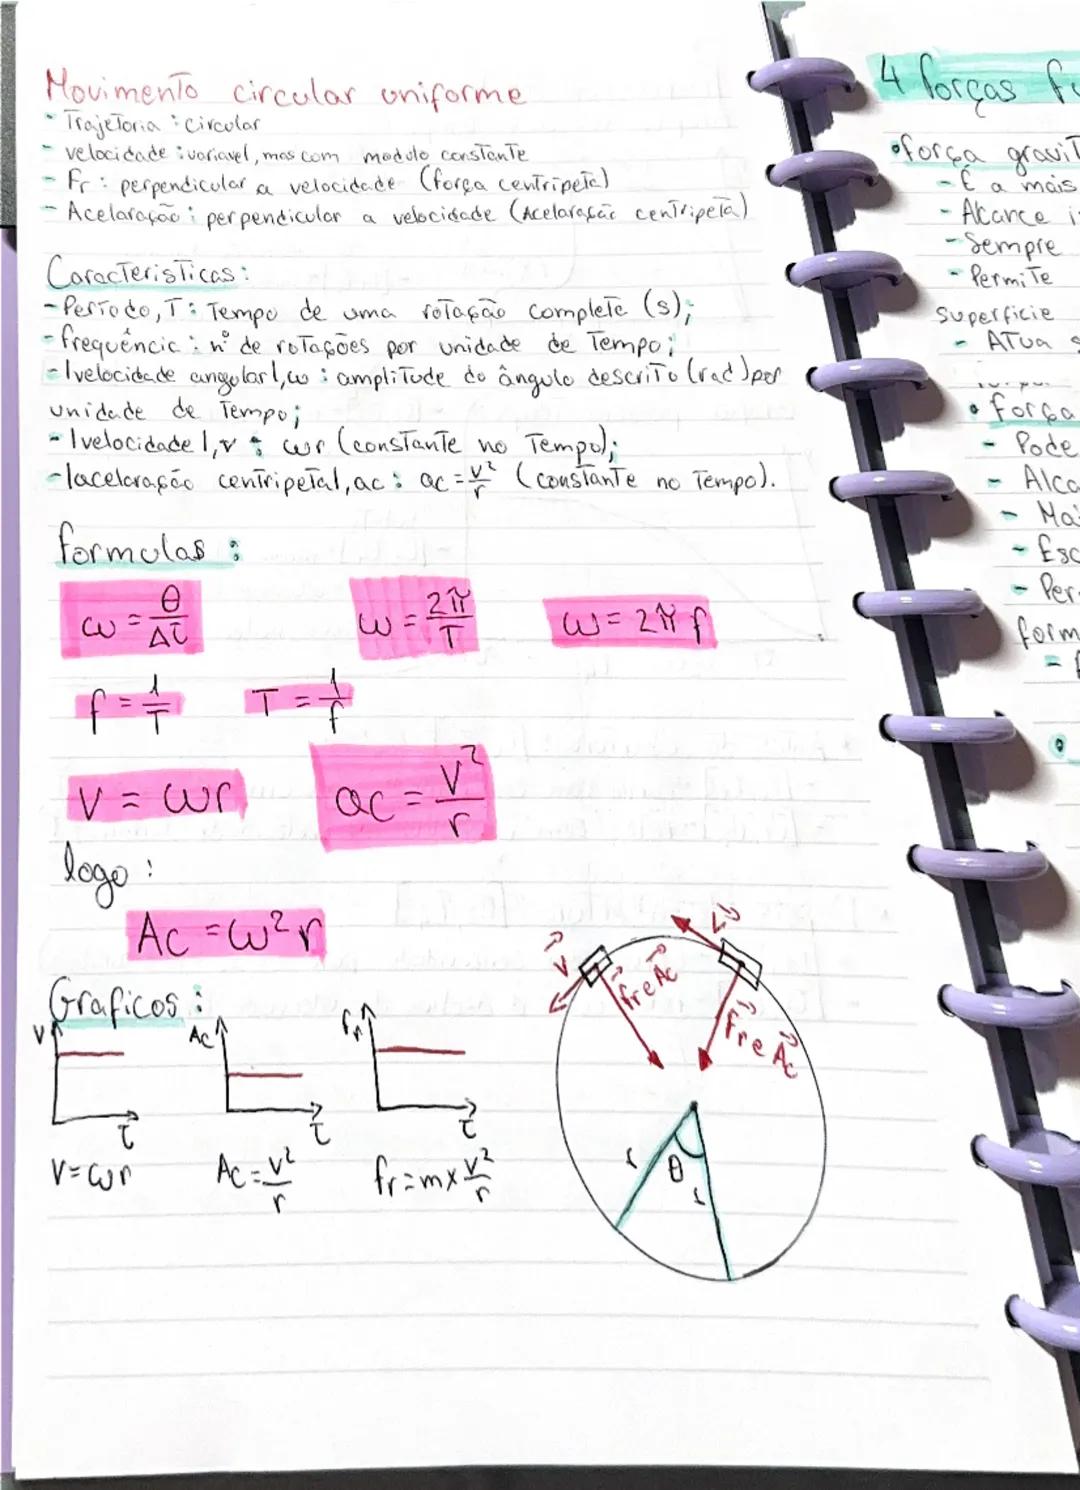 Movimento circular uniforme
- Trajetoria : circular
- velocidade : variavel, mas com modulo constante
- Fr : perpendicular a velocidade (força centripeta)
- Acelaração : perpendicular a velocidade (Acelaração centripeta)
Caracteristicas :
- Período, T : Tempo de uma rotação completa (s);
- frequência : nº de rotações por unidade de Tempo;
- |velocidade angular|, ω : amplitude do ângulo descrito (rad) por
unidade de Tempo;
- |velocidade|, v : ωr (constante no Tempo);
- |acelaração centripeta|, ac : ac = v²/r (constante no Tempo).
formulas :
ω = θ/Δt ω = 2π/T ω = 2π f
f = 1/T T = 1/f
V = ωr ac = v²/r
logo :
Ac = ω² r
Graficos :
V t
Ac t
Fr t
V = ωr Ac = v²/r fr = m x v²/r
v⃗ F⃗r e A⃗c
v⃗ F⃗r e A⃗c
r θ r
4 forças
• força
- É a mais
- Alcance
- Sempre
- Permite
superfície
- Atua
• força
- Pode
-
- Mai
- Esc
- Per
form